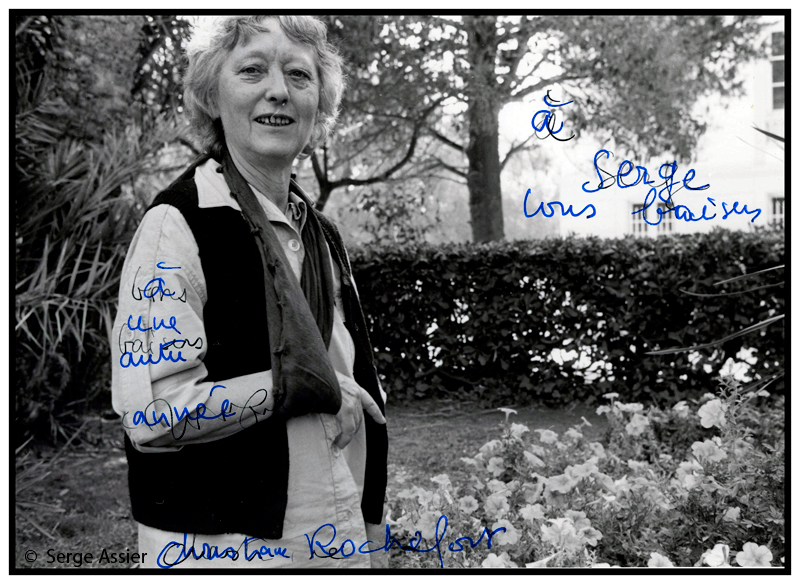 à
Serge
bons baisers
à
une
autre
année
Christiane Rochefort
© Serge Assier